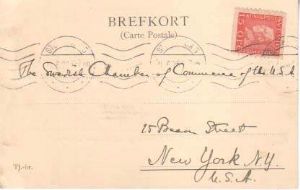 BREFKORT
(Carte Postale)
The Swedish Chamber of Commerce of the U.S.A.
25 Beaver Street
New York N.Y.
U.S.A.